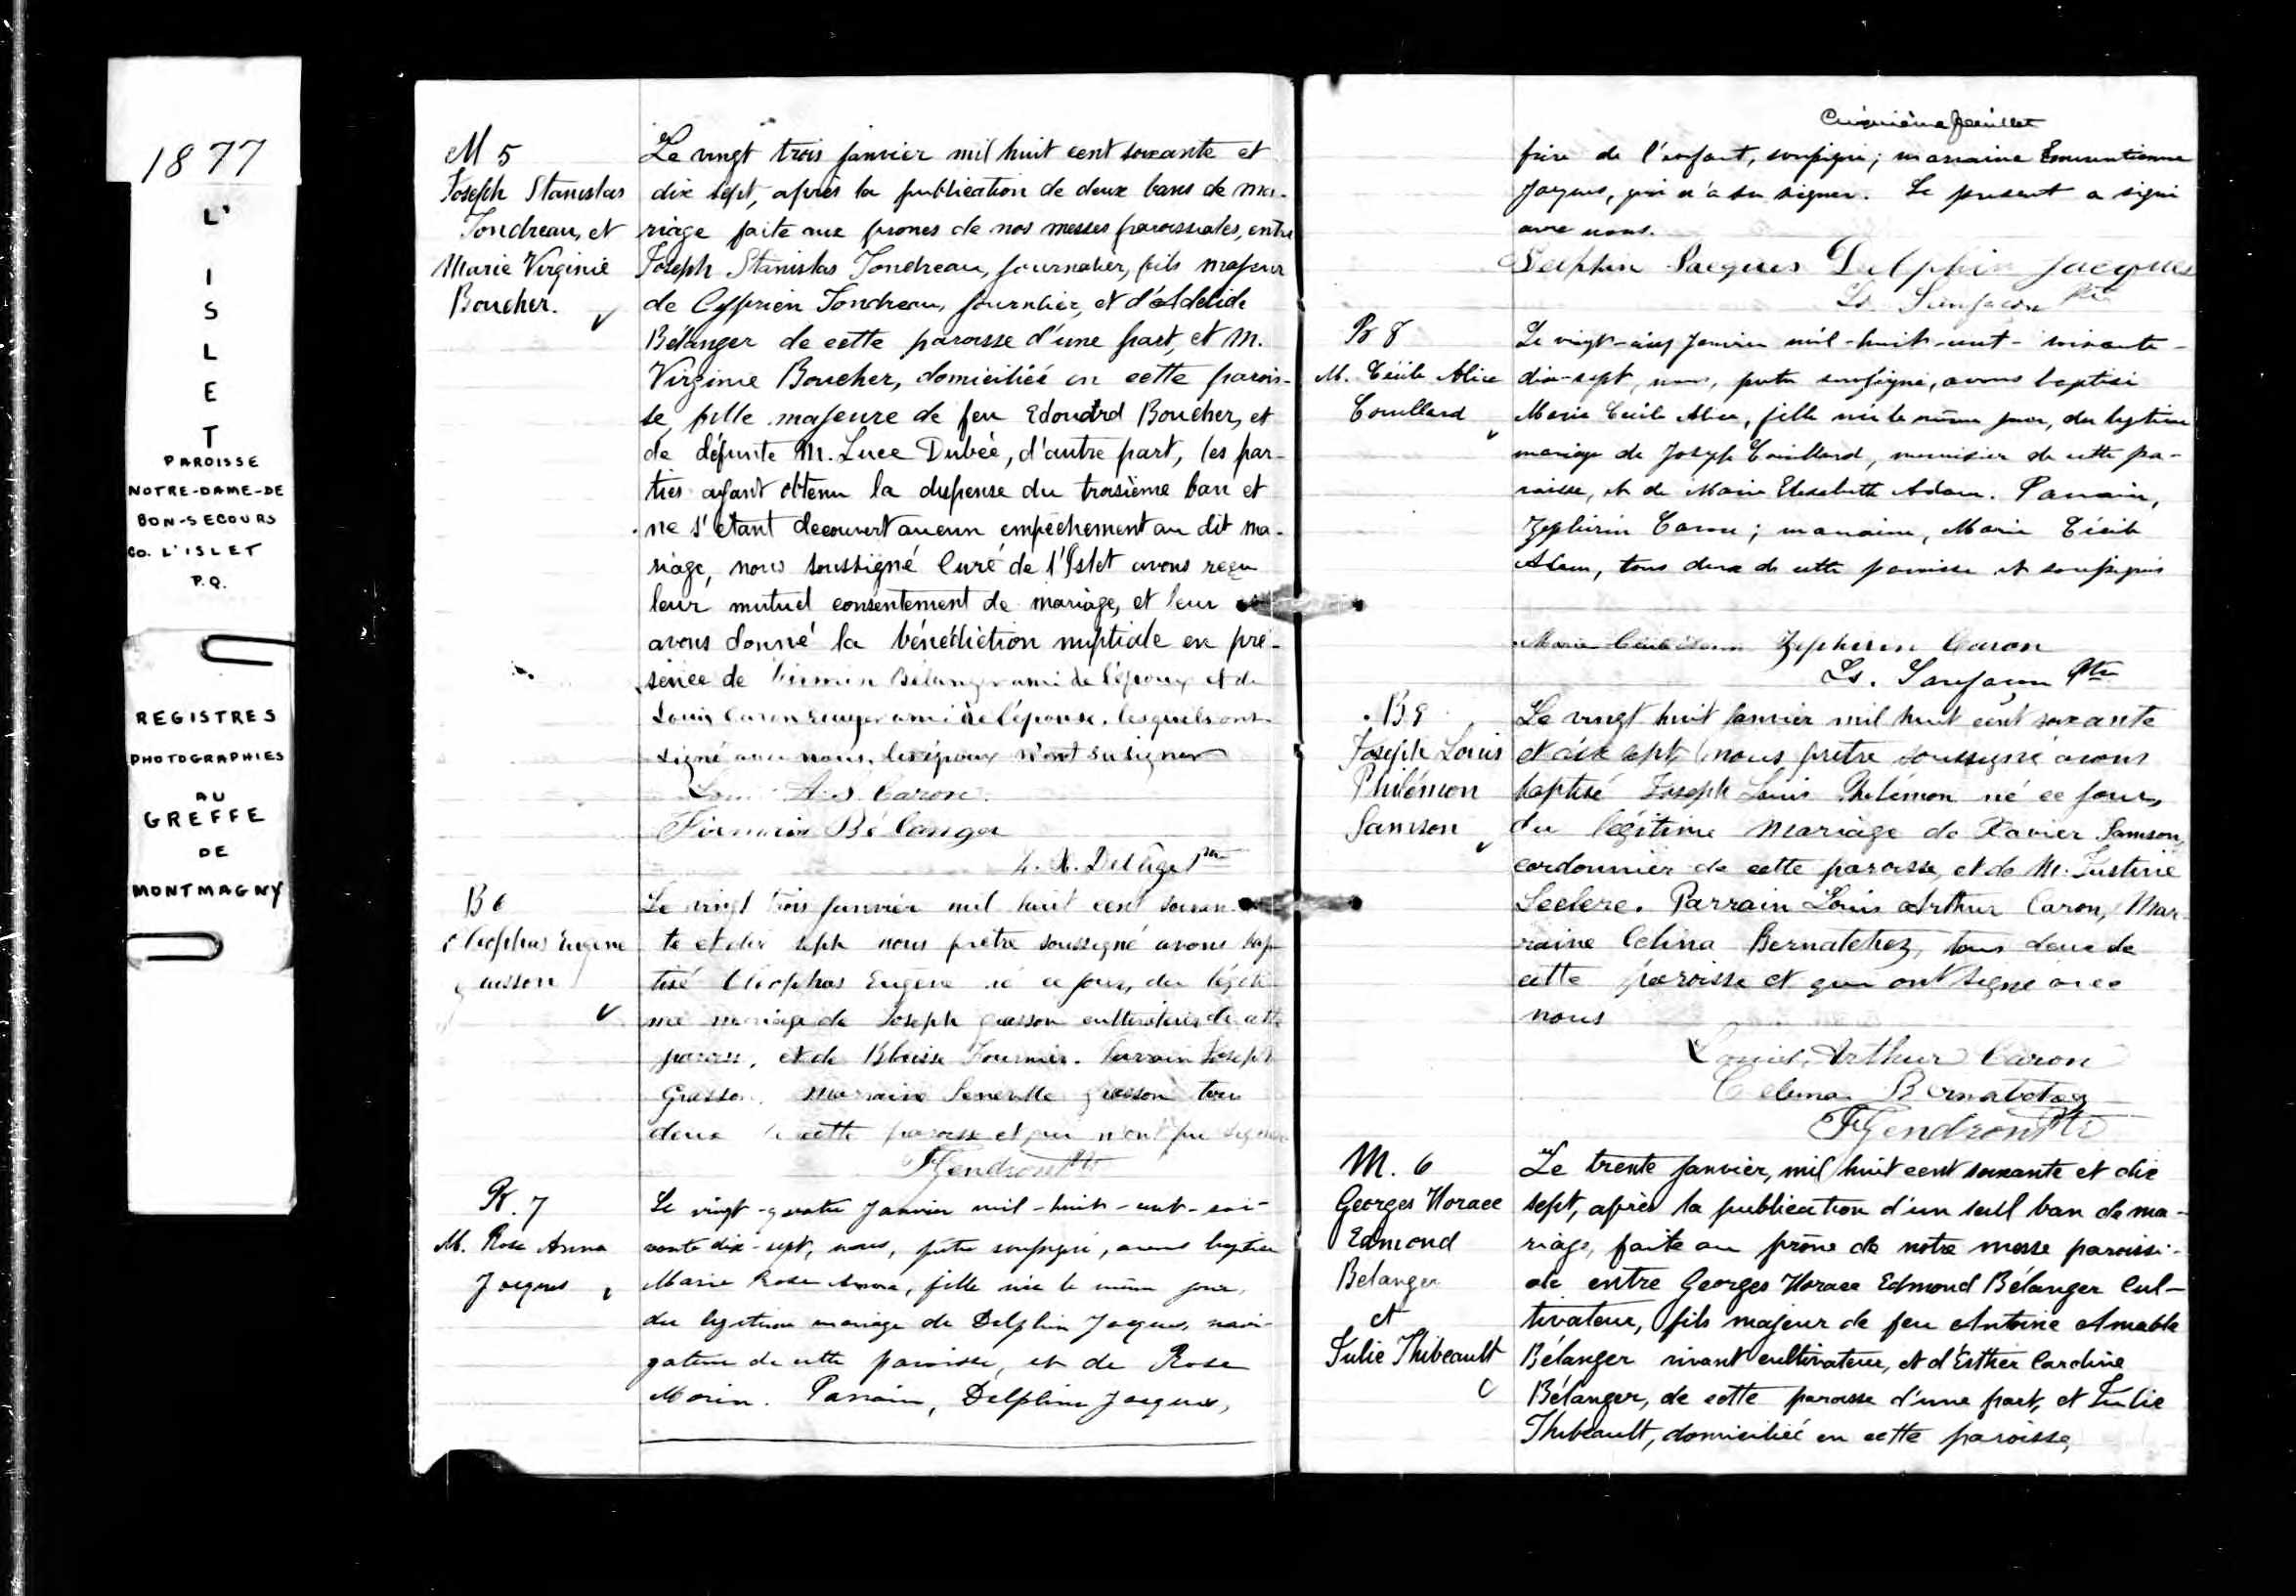 1877
L'
I
S
L
E
T
PAROISSE
NOTRE-DAME-DE
BON-SECOURS
CO. L'ISLET
P.Q.
REGISTRES
PHOTOGRAPHIES
AU
GREFFE
DE
MONTMAGNY
M 5
Joseph Stanislas
Tondreau, et
Marie Virginie
Boucher.
Le vingt trois janvier mil huit cent soixante et
dix sept, après la publication de deux bans de ma-
riage faite aux prones de nos messes paroissiales, entre
Joseph Stanislas Tondreau, journalier, fils majeur
de Cyprien Tondreau, journlier, et d'Adelide
Bélanger de cette paroisse d'une part, et M.
Virginie Boucher, domiciliée en cette parois-
se, fille majeure de feu Edouard Boucher, et
de défunte M. Luce Dubée, d'autre part, les par-
ties ayant obtenu la dispense du troisième ban et
ne s'étant decouvert aucun empêchement au dit ma-
riage, nous soussigné Curé de l'Islet avons reçu
leur mutuel consentement de mariage, et leur
avons donné la bénédiction nuptiale en pré-
sence de Firmin Bélanger ami de l'époux et de
Louis Caron ami de l'épouse, lesquels ont
signé avec nous, les époux n'ont su signer
Caron
Firmin Bélanger
Delâge Ptre
B 6
Cléophas Eugène
Le vingt trois janvier mil huit cent soixan-
te et dix sept nous prêtre soussigné avons bap
tisé Cléophas Eugène né ce jour, du légiti
me mariage de Joseph cultivateur de cette
paroisse, et de Fournier. Parrain Joseph
Marraine tous
deux de cette paroisse et qui n'ont pu signer
FGendron Ptr
B. 7
M. Rose Anna
Jacques
Le vingt-quatre Janvier mil-huit-cent-soi-
xante dix-sept, nous, prêtre soussigné, avons baptisé
Marie Rose Anna, fille née le même jour,
du légitime mariage de Delphin Jacques, navi-
gateur de cette paroisse, et de Rose
Morin. Parrain, Delphin Jacques,
Cinquième feuillet
frère de l'enfant, soussigné; marraine Emerentienne
Jacques, qui n'a su signer. Le present a signé
avec nous.
Delphin Jacques Delphin Jacques
Ls. Sanfaçon Ptre
B 8
M. Cécile Alice
Couillard
Le vingt-cinq Janvier mil-huit-cent-soixante-
dix-sept, nous, prêtre soussigné, avons baptisé
Marie Cécile Alice, fille née le même jour, du légitime
mariage de Joseph Couillard, menuisier de cette pa-
roisse, et de Marie Elisabeth Adam. Parrain,
Zéphirin Caron; marraine, Marie Cécile
Adam, tous deux de cette paroisse et soussignés
Marie Cécile Adam Zephirin Caron
Ls. Sanfaçon Ptre
B 9
Joseph Louis
Philémon
Samson
Le vingt huit Janvier mil huit cent soixante
et dix sept, nous prêtre soussigné avons
baptisé Joseph Louis Philémon né ce jour,
du légitime mariage de Xavier Samson,
cordonnier de cette paroisse, et de M. Justine
Leclerc. Parrain Louis Arthur Caron, Mar-
raine Celina Bernatchez, tous deux de
cette paroisse et qui ont signé avec
nous
Louis Arthur Caron
Celina Bernatchez
FGendron Ptr
M. 6
Georges Horace
Edmond
Belanger
et
Julie Thibeault
Le trente janvier, mil huit cent soixante et dix
sept, après la publication d'un seul ban de ma-
riage, faite au prône de notre messe paroissi-
ale entre Georges Horace Edmond Bélanger Cul-
tivateur, fils majeur de feu Antoine Amable
Bélanger vivant cultivateur, et d'Esther Caroline
Bélanger, de cette paroisse d'une part, et Julie
Thibeault, domiciliée en cette paroisse,